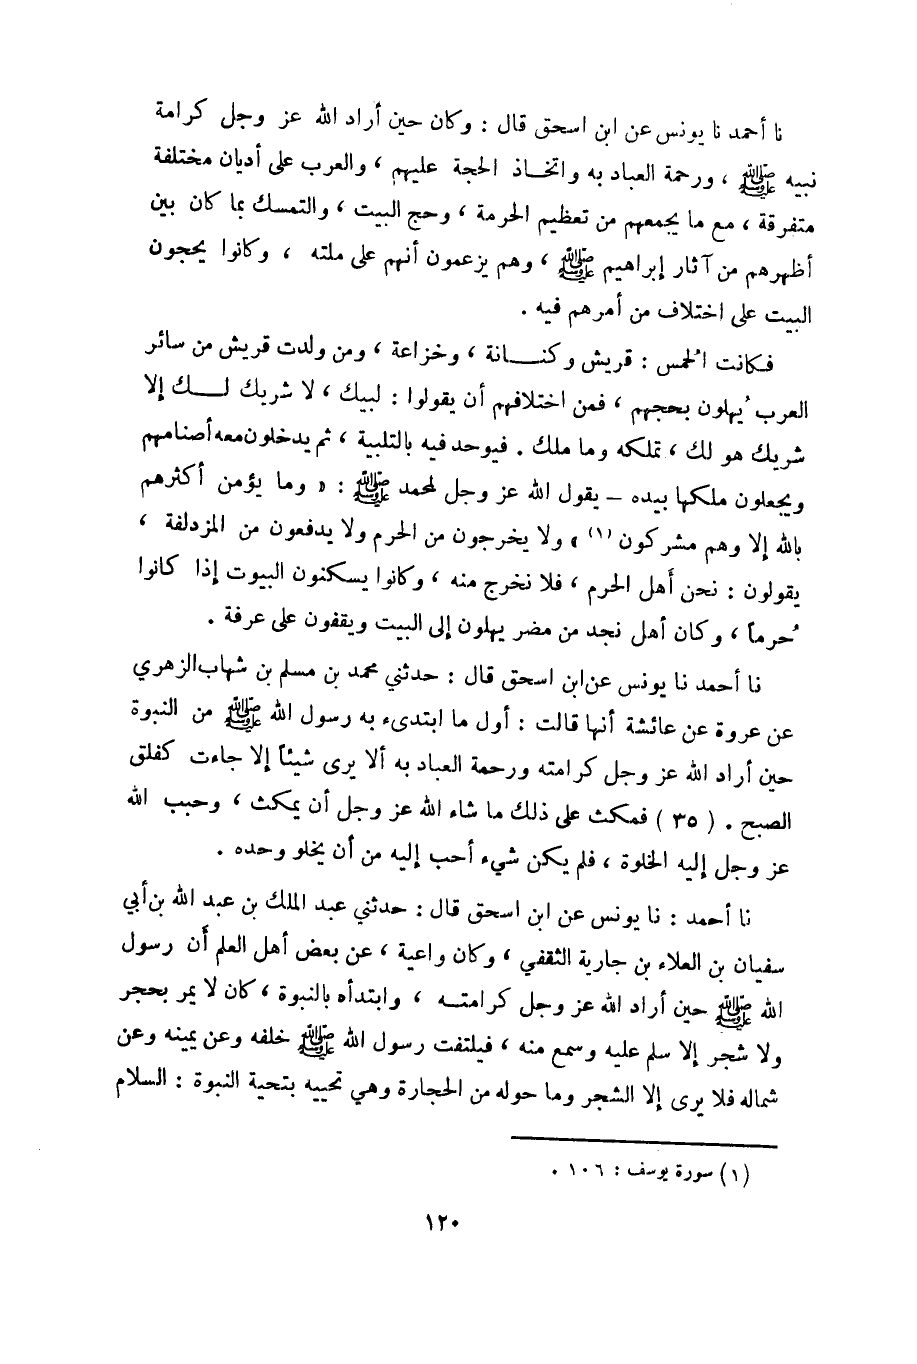 نا أحمد نا يونس عن ابن اسحق قال : وكان حين أراد الله عز وجل كرامة
نبيه ﷺ ، ورحمة العباد به واتخـاذ الحجة عليهم ، والعرب على أديان مختلفة
متفرقة ، مع ما يجمعهم من تعظيم الحرمة ، وحج البيت ، والتمسك بما كان بين
أظهرهم من آثار إبراهيم ﷺ ، وهم يزعمون أنهم على ملته ، وكانوا يحجون
البيت على اختلاف من أمرهم فيه .
فكانت الحُمس : قريش وكنـــانة ، وخزاعة ، ومن ولدت قريش من سائر
العرب يُهلون بحجهم ، فمن اختلافهم أن يقولوا : لبيك ، لا شريك لـــك إلا
شريك هو لك ، تملكه وما ملك . فيوحد فيه بالتلبية ، ثم يدخلون معه أصنامهم
ويجعلون ملكها بيده – يقول الله عز وجل لمحمد ﷺ : « وما يؤمن أكثرهم
بالله إلا وهم مشركون (١) » ولا يخرجون من الحرم ولا يدفعون من المزدلفة ،
يقولون : نحن أهل الحرم ، فلا نخرج منه ، وكانوا يسكنون البيوت إذا كانوا
حُرماً ، وكان أهل نجد من مضر يهلون إلى البيت ويقفون على عرفة .
نا أحمد نا يونس عن ابن اسحق قال : حدثني محمد بن مسلم بن شهاب الزهري
عن عروة عن عائشة أنها قالت : أول ما ابتدىء به رسول الله ﷺ من النبوة
حين أراد الله عز وجل كرامته ورحمة العباد به ألا يرى شيئاً إلا جاءت كفلق
الصبح . ( ٣٥ ) فمكث على ذلك ما شاء الله عز وجل أن يمكث ، وحبب الله
عز وجل إليه الخلوة ، فلم يكن شيء أحب إليه من أن يخلو وحده .
نا أحمد : نا يونس عن ابن اسحق قال : حدثني عبد الملك بن عبد الله بن أبي
سفيان بن العلاء بن جارية الثقفي ، وكان واعية ، عن بعض أهل العلم أن رسول
الله ﷺ حين أراد الله عز وجل كرامتــه ، وابتدأه بالنبوة ، كان لا يمر بحجر
ولا شجر إلا سلم عليه وسمع منه ، فيلتفت رسول الله ﷺ خلفه وعن يمينه وعن
شماله فلا يرى إلا الشجر وما حوله من الحجارة وهي تحييه بتحية النبوة : السلام
(١) سورة يوسف : ١٠٦ .
١٢٠